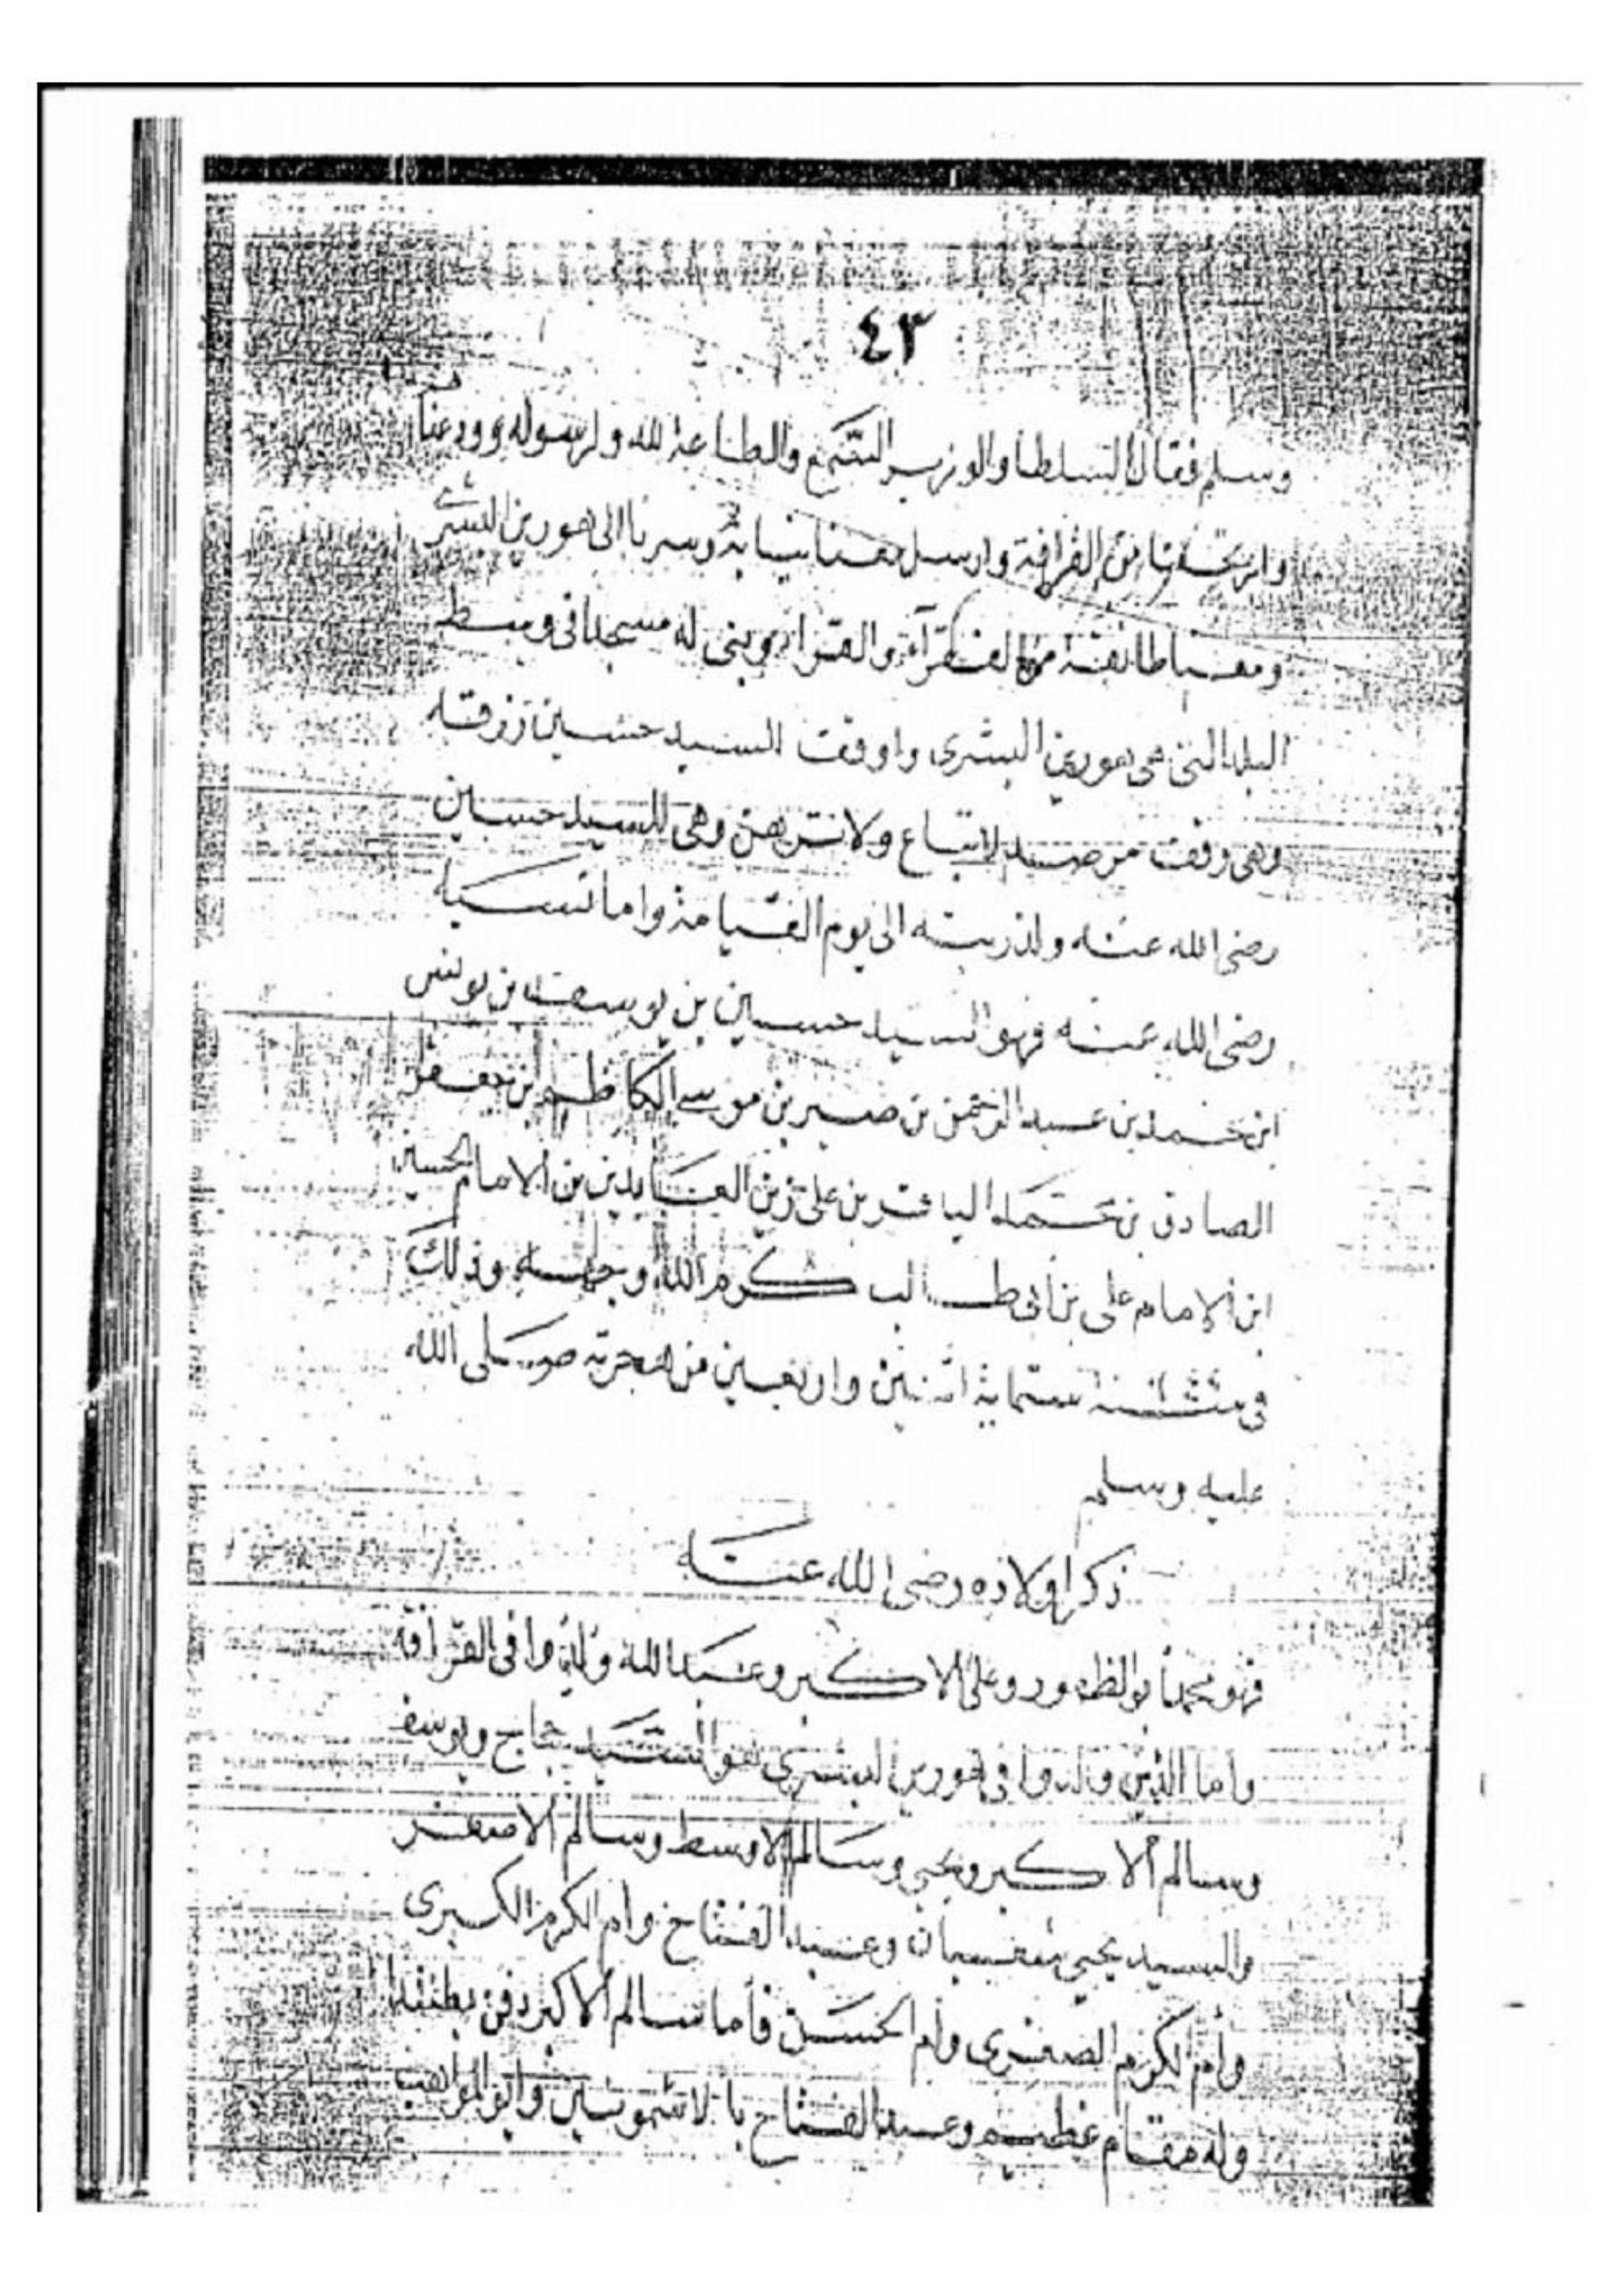 ٤٣
وسلم فقال السلطا والوزير السمع والطاعة لله ولرسوله وودعنا
وارتحلنا من القرافة وارسل معنا نسابة وسرنا الى هورين البشرى
ومعنا طائفة من الفقرآء والقرا وبنى له مسجدا فى وسط
البلد التى هى هورين البشرى واوقف السيد حسين رزقه
وهى وقف مرصد لاتباع ولا ترهن وهى للسيد حسين
رضى الله عنه ولذريته الى يوم القيامة واما نسبه
رضى الله عنه فهو السيد حسين بن يوسف بن يونس
ابن محمد بن عبد الرحمن بن صبر بن موسى الكاظم ابن جعفر
الصادق بن محمد الباقر بن على زين العابدين بن الامام الحسين
ابن الامام على بن ابى طالب كرم الله وجهه وذلك
فى سنة ستماية اثنين واربعين من هجرته صلى الله
عليه وسلم
ذكر اولاده رضى الله عنه
فهو محمد ابو الظهور وعلى الاكبر وعبد الله ولدوا فى القرافه
واما الذين ولدوا فى هورين البشرى هو السيد حجاج ويوسف
وسالم الاكبر ويحيى وسالم الاوسط وسالم الاصغر
والسيد يحيى شعبان وعبد الفتاح وام الكرم الكبرى
وام الكرم الصغرى وام الحسن فأما سالم الاكبر دفن
وله مقام عظيم وعبد الفتاح بالاشمونين وابو المواهب